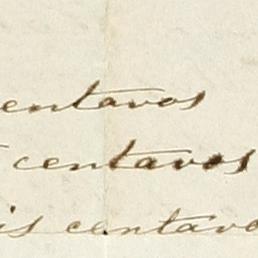 centavos
centavos
is centavo